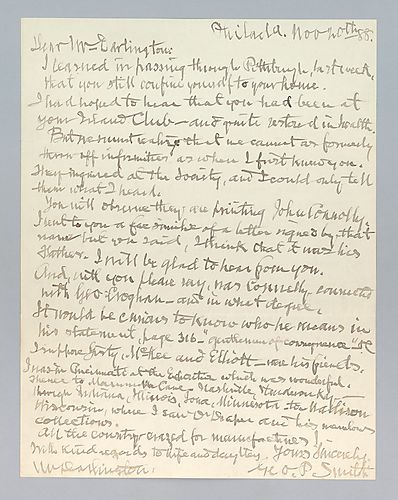 Philada. Nov 20th 88.
Dear Mr Darlington:
I learned in passing through Pittsburgh, last week,
that you still confine yourself to your home.
I had hoped to hear that you had been at
your Island Club – and quite restored in health.
But we must realize that we cannot as formerly
throw off infirmities as when I first knew you.
They inquired at the Society, and I could only tell
them what I heard.
You will observe they are printing John Connolly.
I sent to you a fac simile of a letter signed by that
name but you said, I think that it was his
Father. I will be glad to hear from you.
And, will you please say, was Connelly connected
with Geo Croghan – and in what degree.
It would be curious to know who he means in
his statement, page 316 – "gentlemen of consequence"
I suppose Girty, McKee and Elliott – were his friends.
I was in Cincinnati at the Exposition which was wonderful
thence to Mammoth Cave – Nashville,
through Indiana, Illinois, Iowa, Minnesota to Madison
Wisconsin, where I saw Dr Draper and his marvelous
collections.
All the country crazed for manufactures!
With kind regards to wife and daughter. Yours Sincerely
Mr Darlington. Geo. P. Smith